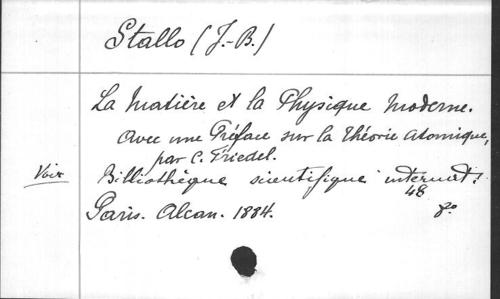 Stallo (J.-B.)
La Matière et la Physique Moderne.
Avec une Préface sur la Théorie Atomique,
par C. Friedel.
Voir Bibliothèque scientifique internat:
48
Paris. Alcan. 1884. 8o